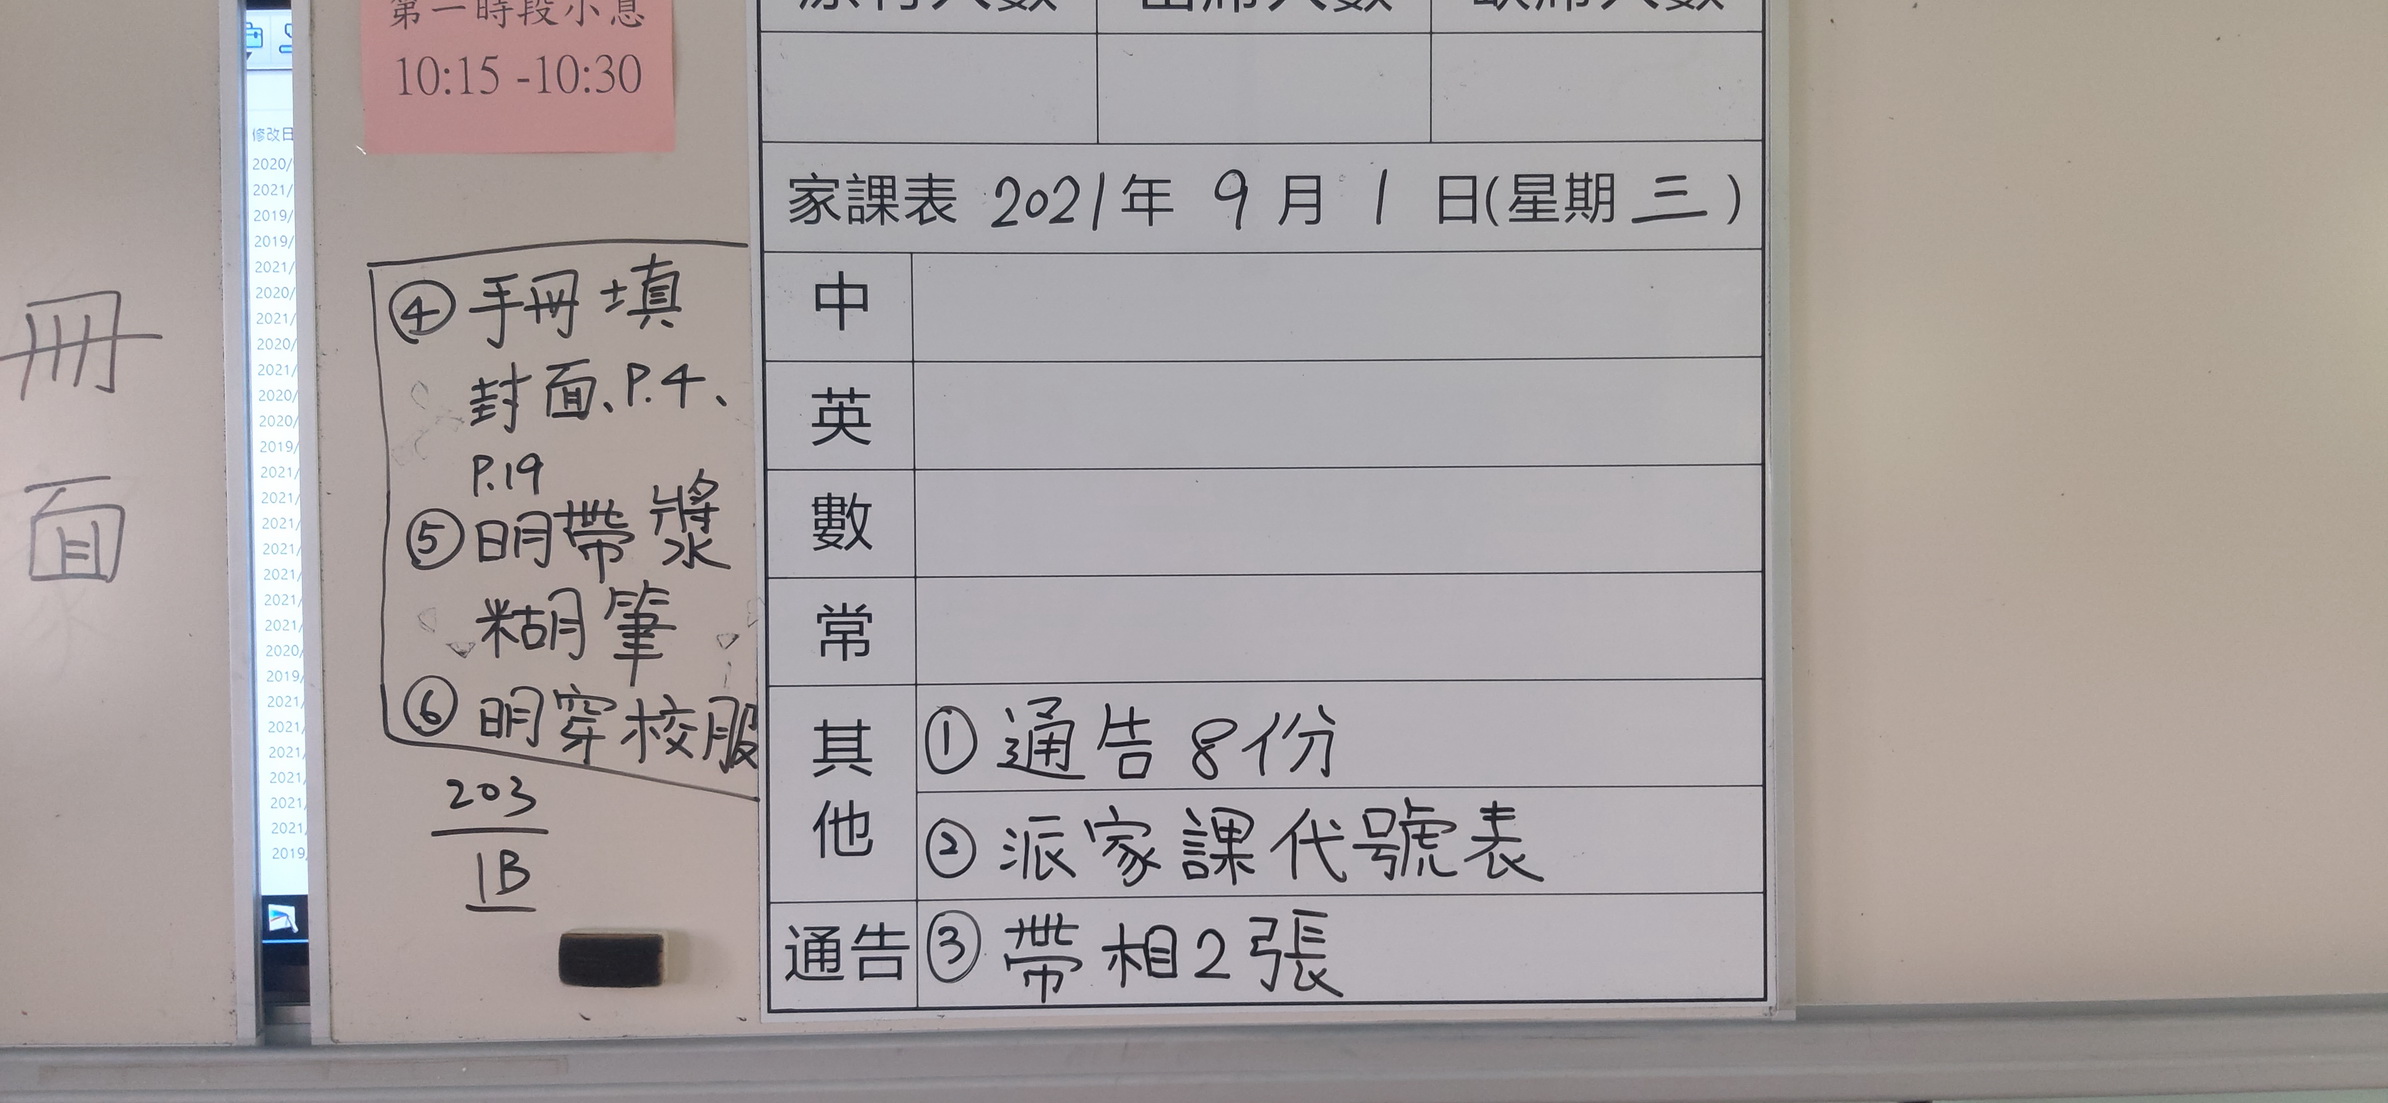 第一時段小息
10:15 -10:30
原有人數 出席人數 缺席人數
家課表 2021年 9月 1日(星期三)
中
英
數
常
其他
①通告8份
②派家課代號表
通告 ③帶相2張
④手冊填
封面、P.4、
P.19
⑤明帶漿
糊筆
⑥明穿校服
203
1B
冊
面
修改日
2020/
2021/
2019/
2019/
2021/
2020/
2021/
2020/
2021/
2020/
2020/
2019/
2021/
2021/
2021/
2021/
2021/
2021/
2021/
2020/
2019/
2021/
2021/
2021/
2021/
2021/
2021/
2019/